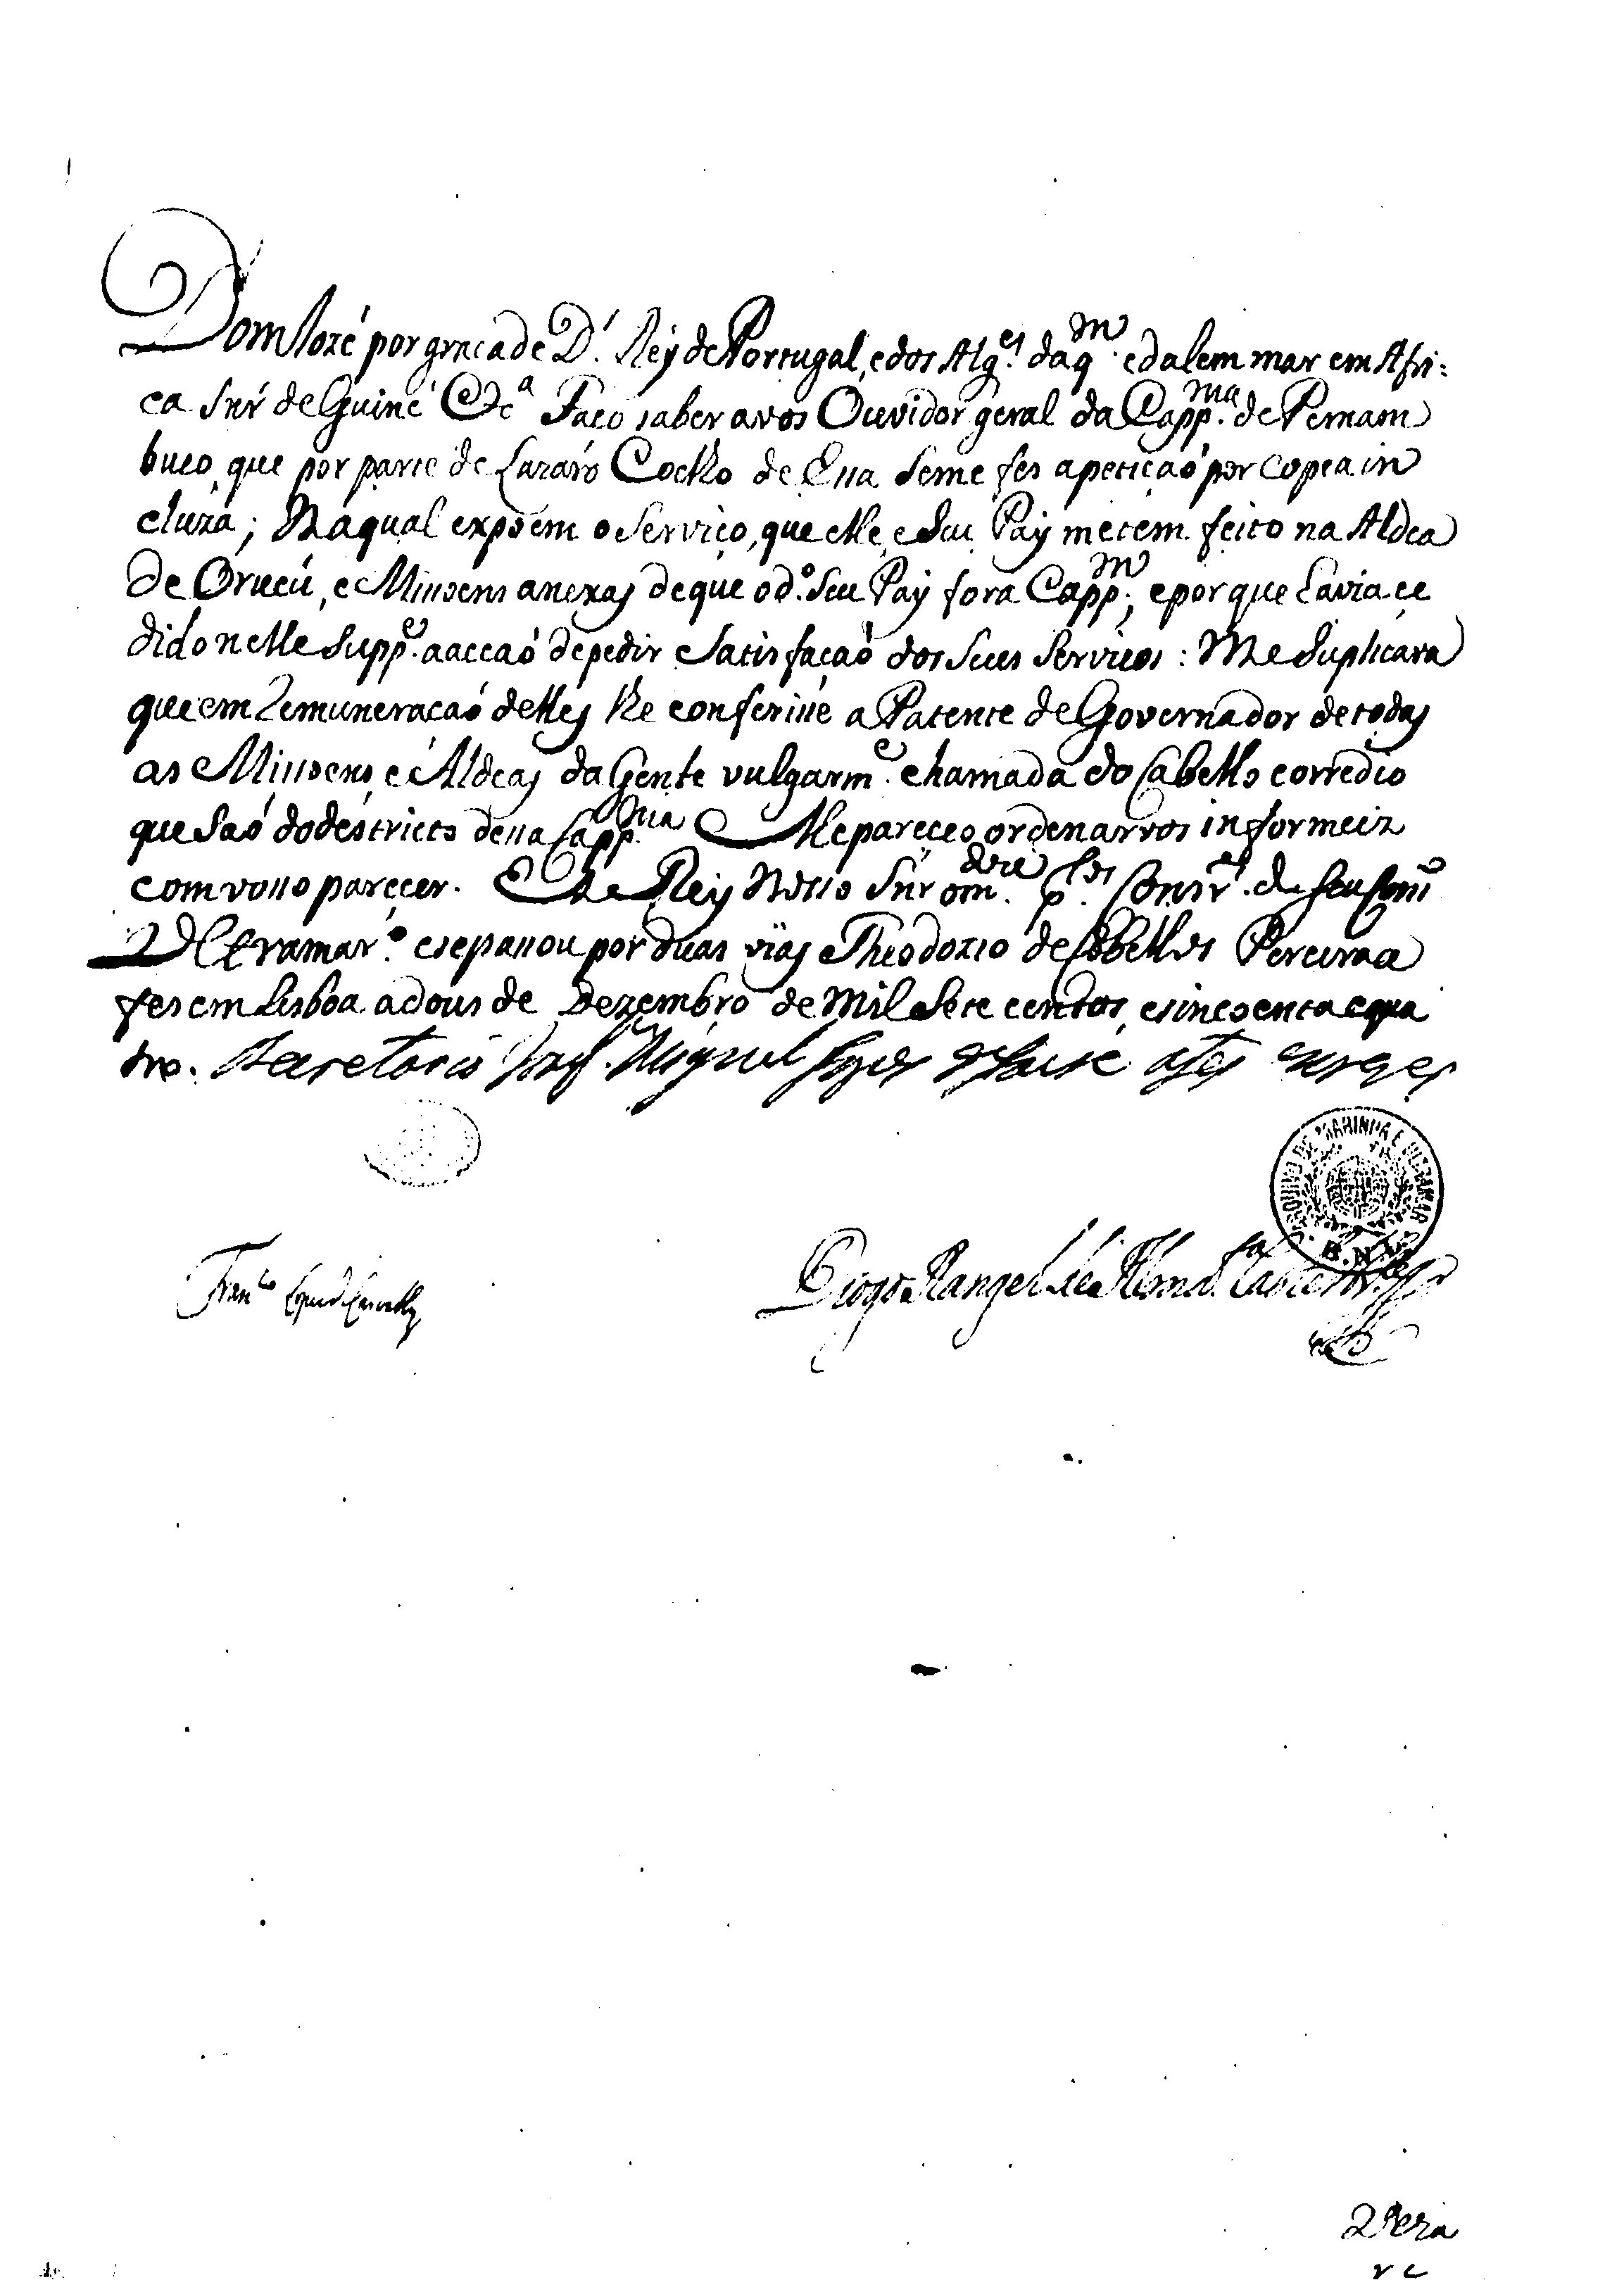 Dom Jozé por graça de D.ˢ Rey de Portugal, e dos Alg.ᵉˢ daq.ᵐ e dalem mar em Afri=
ca Snr̃ de Guiné &cᵃ Faço saber a vos Ouvidor geral da Capp.ⁿⁱᵃ de Pernam
buco, que por parte de Lazaro Coelho de Eça se me fes a petiçaõ por copea in
cluza; Na qual expoem o Serviço, que elle, e Seu Pay me tem feito na Aldea
de Orucú, e Missoens anexas de que o d.º Seu Pay fora Capp.ᵐ, e por que havia ce
dido nelle Supp.ᵉ a acçaõ de pedir e Satisfaçaõ dos Seus Serviços: Me Suplicava
que em Remuneraçaõ delles lhe conferisse a Patente de Governador de todas
as Missoens, e Aldeas da Gente vulgarm.ᵉ chamada do Cabello corredio
que Saõ do destricto dessa Capp.ⁿⁱᵃ Me pareceo ordenarvos informeis
com vosso parecer. El Rey Nosso Snr̃ o m.ᵈᵒᵘ p.ˡᵒˢ Cons.ʳᵒˢ do seu Cons.º
Ultramar.º e se passou por duas vias Theodozio de Cobellos Pereira a
fes em Lisboa a dous de Dezembro de Mil Sete centos, e sincoenta e qua
tro. Secretario Joaq. Miguel Lopes de Lavre a fes escrever
ARQUIVO DE MARINHA E ULTRAMAR
B.N.L.
Fran.ᶜᵒ
Diogo Rangel de Alm.ᵈᵃ Castel Br.ᶜᵒ
2ª via